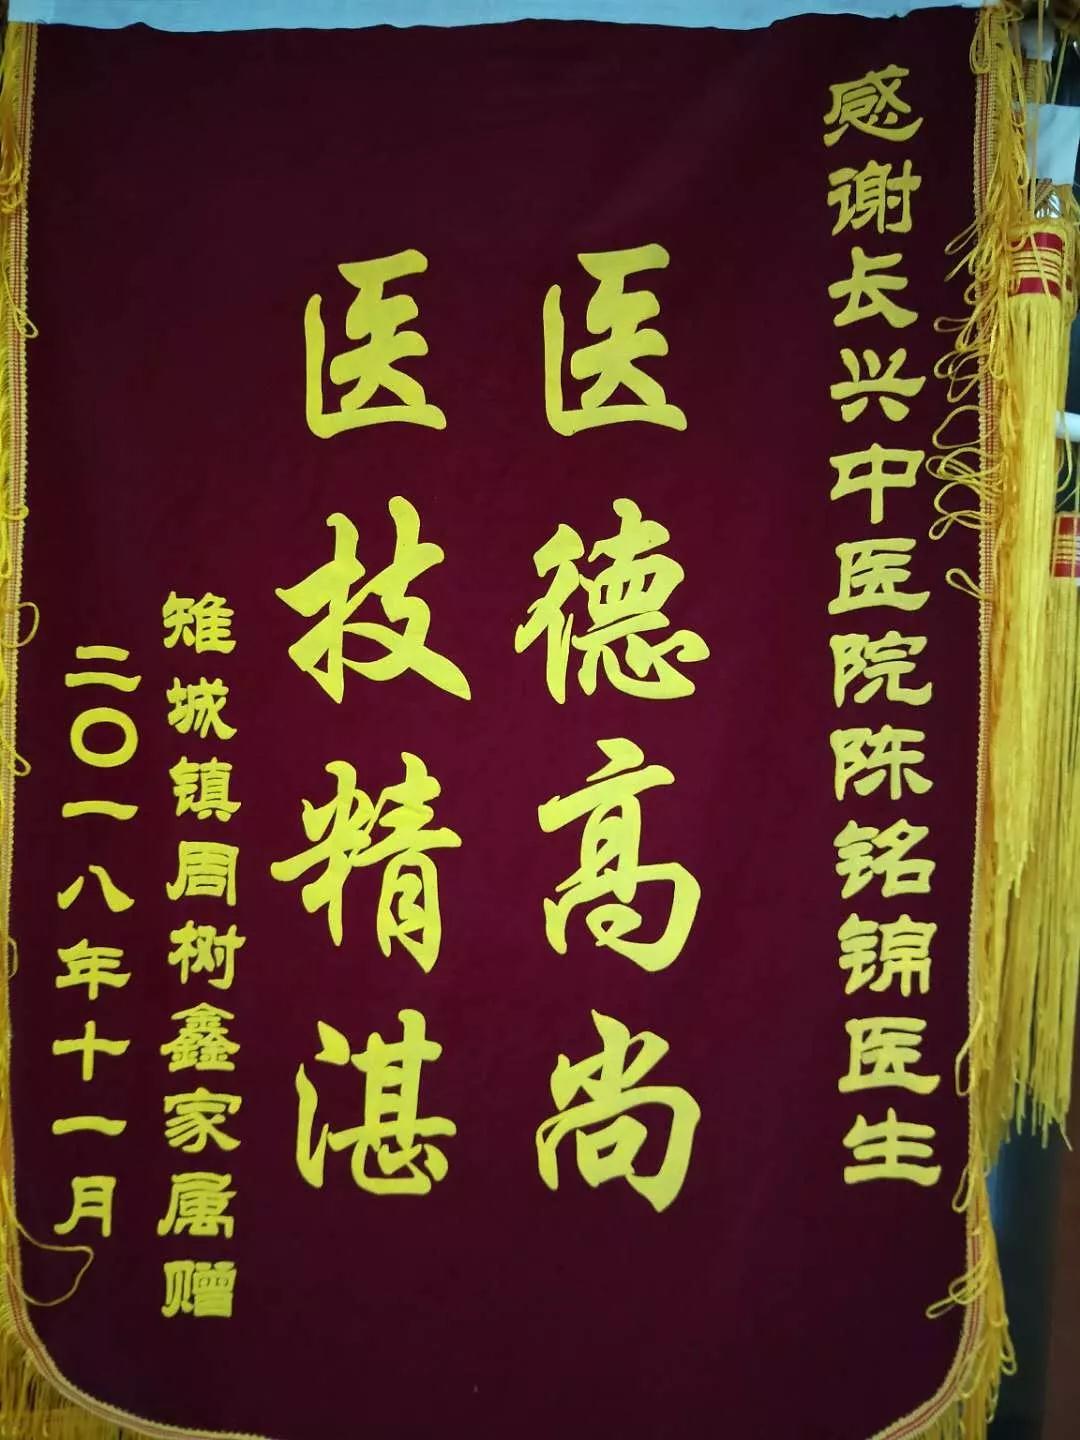 感谢长兴中医院陈铭锦医生
医德高尚
医技精湛
雉城镇周树鑫家属赠
二〇一八年十一月